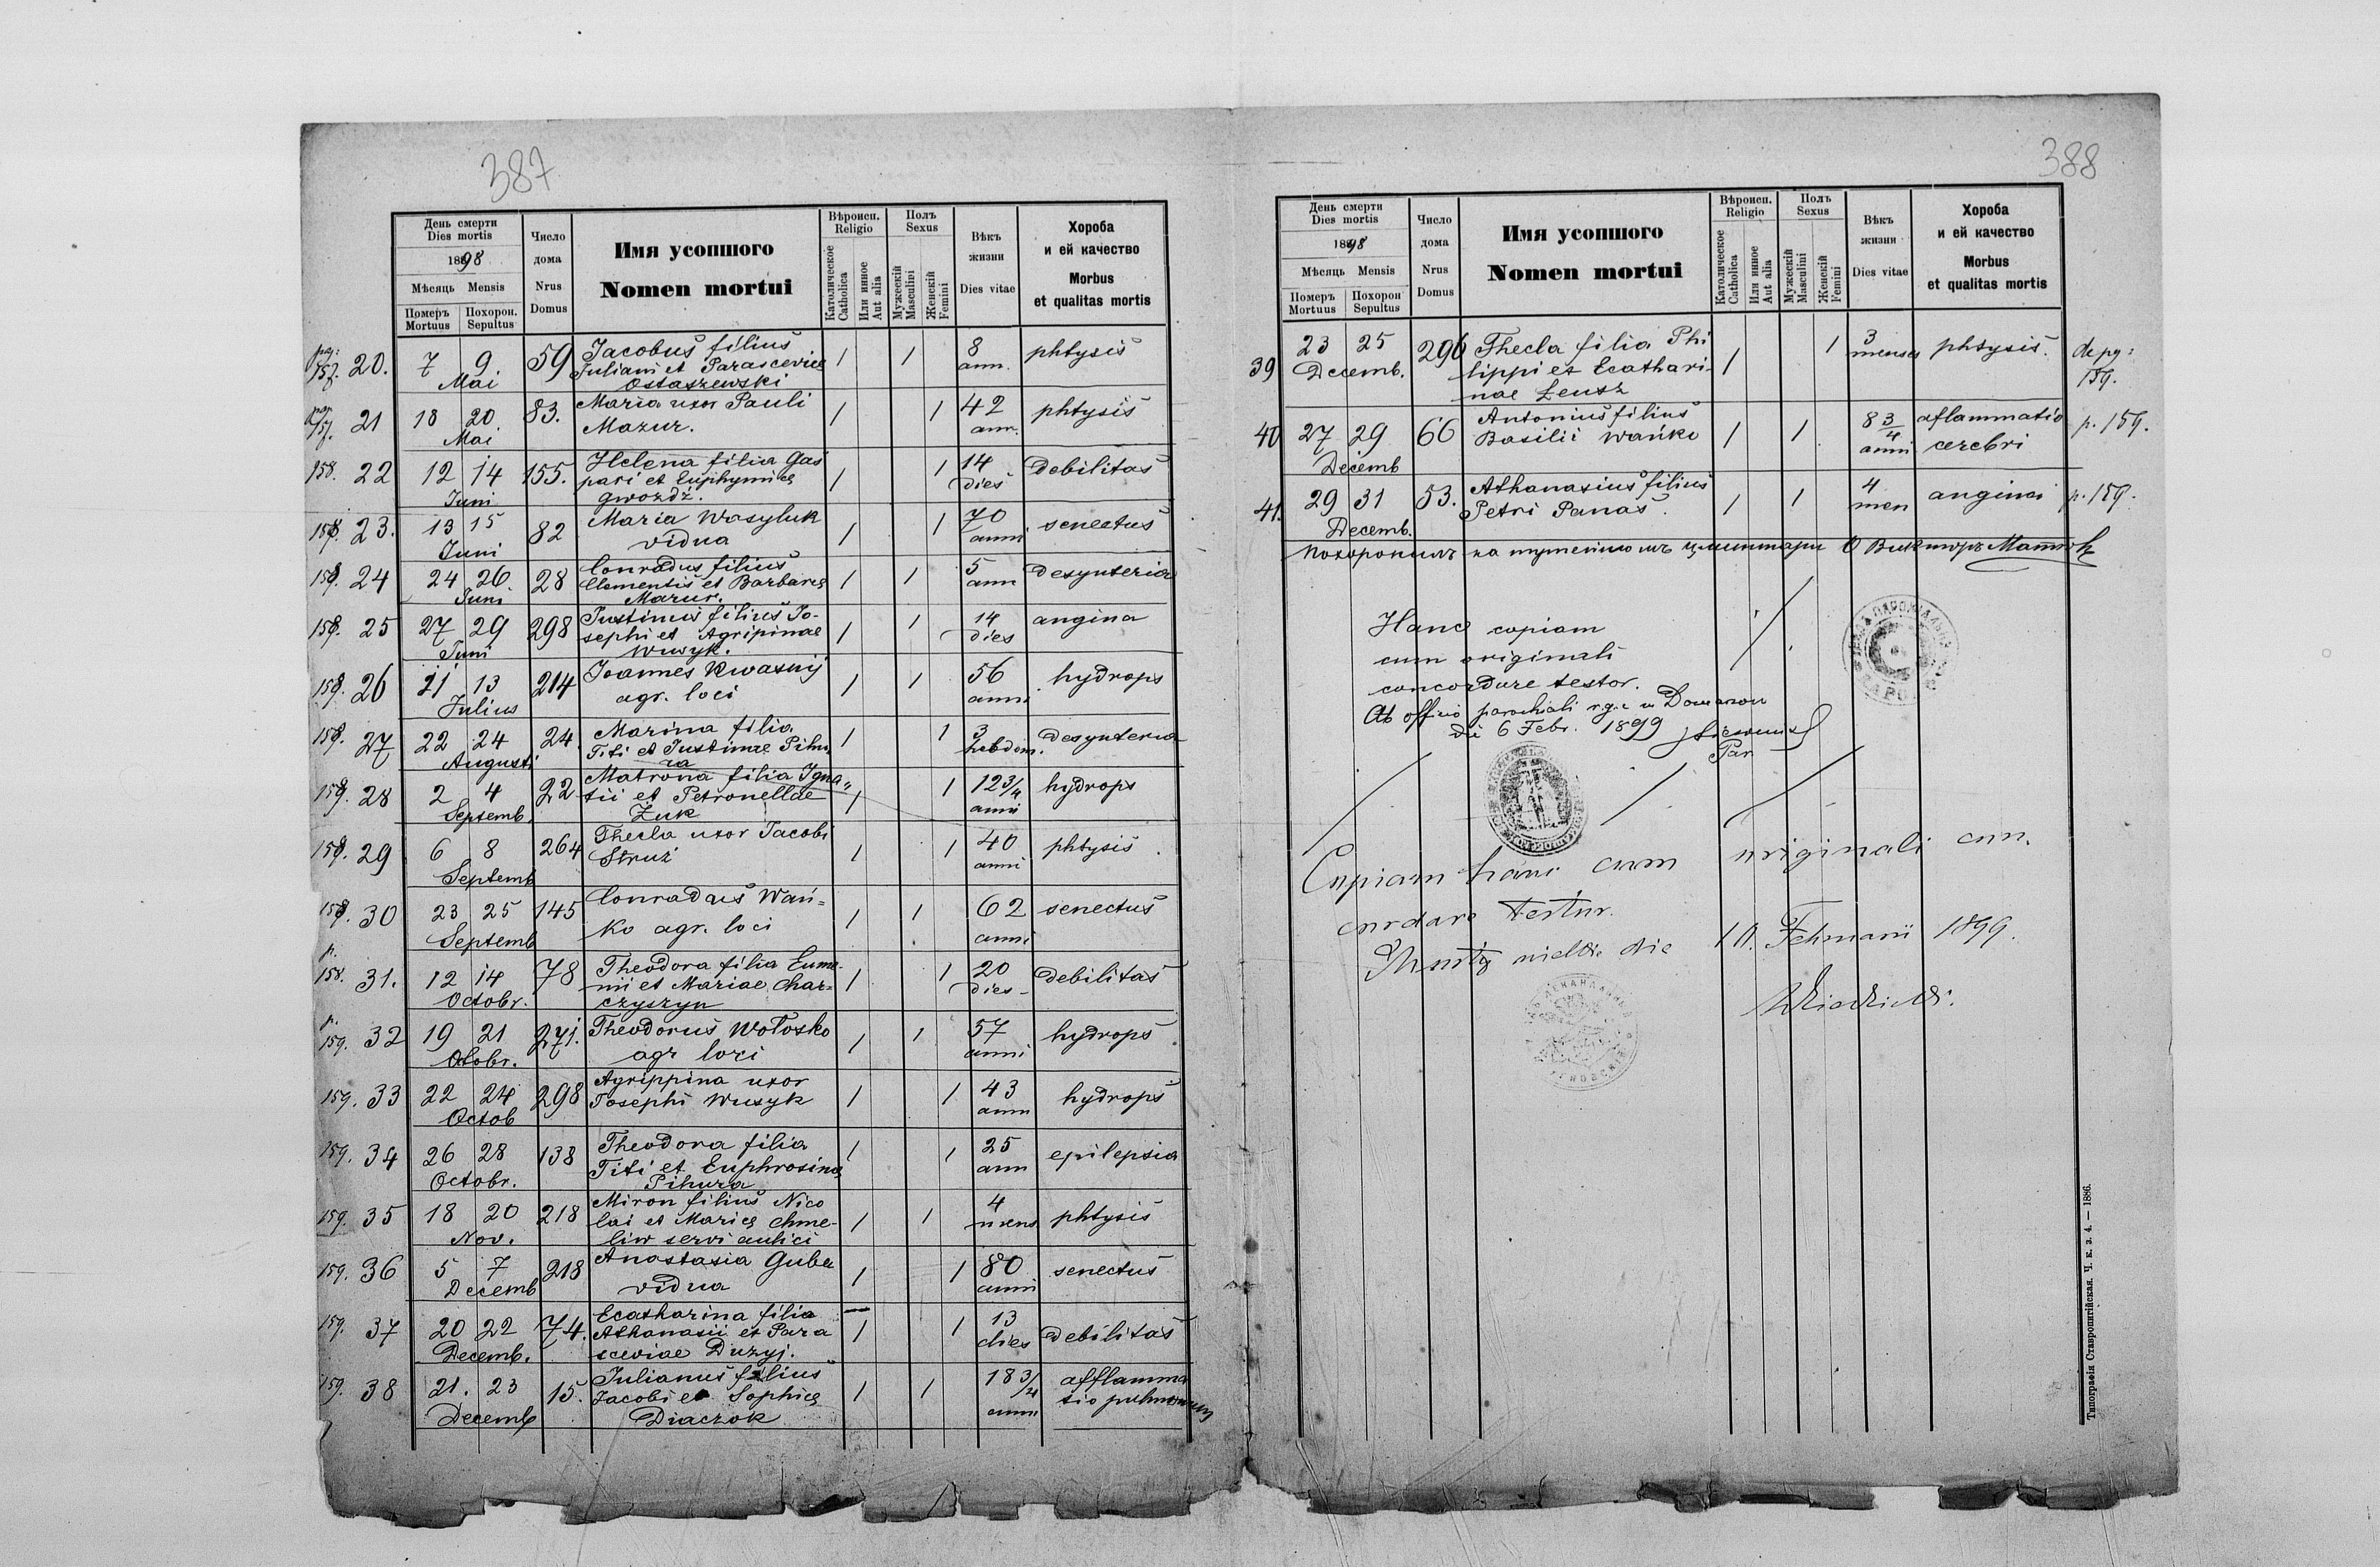 387
День смерти
Dies mortis
1898
Мѣсяць Mensis
Померъ Mortuus
Похорон. Sepultus
Число дома
Nrus Domus
Имя усопшого
Nomen mortui
Вѣроисп.
Religio
Католическое Catholica
Или инное Aut alia
Полъ
Sexus
Мужескій Masculini
Женскій Femini
Вѣкъ жизни
Dies vitae
Хороба
и ей качество
Morbus
et qualitas mortis
pag: 157. 20. 7 9 Mai 59 Jacobus filius
Juliani et Parasceviae
Ostaszewski 1 1 8 ann. phtysis
pag. 157. 21 18 20 Mai 83. Maria uxor Pauli
Mazur. 1 1 42 ann. phtysis
158. 22 12 14 Juni 155. Helena filia Gas
pari et Euphymiae
Gwozdź. 1 1 14 dies debilitas
158. 23. 13 15 Juni 82 Maria Wasyluk
vidua 1 1 70 anni senectus
158. 24 24 26 Juni 28 Conradus filius
Clementis et Barbarae
Mazur. 1 1 5 ann desynteria
158. 25 27 29 Juni 298 Justinus filius Jo-
sephi et Agripinae
Wusyk. 1 1 14 dies angina
158. 26 11 13 Julius 214 Joannes Kwasnij
agr. loci 1 1 56 anni hydrops
158. 27 22 24 Augusti 24 Marina filia
Titi et Justinae Pihu
ra 1 1 3 hebdom. desynteria
158. 28 2 4 Septemb. 22 Matrona filia Igna„
tii et Petronellae
Żuk 1 1 12 3/4 anni hydrops
158. 29 6 8 Septemb 264 Thecla uxor Jacobi
Struź 1 1 40 anni phtysis
158. 30 23 25 Septemb 145 Conradus Wań=
ko agr. loci 1 1 62 anni senectus
p. 158. 31. 12 14 Octobr. 78 Theodora filia Eume-
nii et Mariae Char=
czyszyn 1 1 20 dies debilitas
p. 159. 32 19 21 Otobr. 271. Theodorus Wołosko
agr loci 1 1 57 anni hydrops
159. 33 22 24 Octob 298 Agrippina uxor
Josephi Wusyk 1 1 43 anni hydrops
159. 34 26 28 Octobr. 138 Theodora filia
Titi et Euphrosinae
Pihura 1 1 25 ann epilepsia
159. 35 18 20 Nov. 218 Miron filius Nico
lai et Mariae Chme-
liw servi aulici 1 1 4 mens phtysis
159. 36 5 7 Decemb 218 Anastasia Guba
vidua 1 1 80 anni senectus
159. 37 20 22 Decemb. 74. Ecatharina filia
Athanasii et Para
sceviae Duzyj. 1 1 13 dies debilitas
159. 38 21. 23 Decemb 15. Julianus filius
Jacobi et Sophiae
Diaczok 1 1 18 3/4 anni afflamma
tio pulmonum
388
День смерти
Dies mortis
1898
Мѣсяць Mensis
Померъ Mortuus
Похорон Sepultus
Число дома
Nrus Domus
Имя усопшого
Nomen mortui
Вѣроисп.
Religio
Католическое Catholica
Или инное Aut alia
Полъ
Sexus
Мужескій Masculini
Женскій Femini
Вѣкъ жизни
Dies vitae
Хороба
и ей качество
Morbus
et qualitas mortis
39 23 25 Decemb. 296 Thecla filia Phi
lippi et Ecathari-
nae Leusz 1 1 3 menses phtysis. de pg: 159.
40 27 29 Decemb 66 Antonius filius
Basilii Wańko 1 1 8 3/4 anni aflammatio
cerebri p. 159.
41. 29 31 Decemb. 53. Athanasius filius
Petri Panas. 1 1 4 men angina p. 159.
похоронилъ на тутейшомъ цминтари О Викторъ
Hanc copiam
cum originali
concordare testor.
Ab officio parochiali r.g.c in Domazon
die 6 Febr. 1899
Par
Copiam hanc cum originali con.
cordare testor.
die 10. Februarii 1899.
Типографія Ставропигійская. Ч. к. з. 4. — 1886.